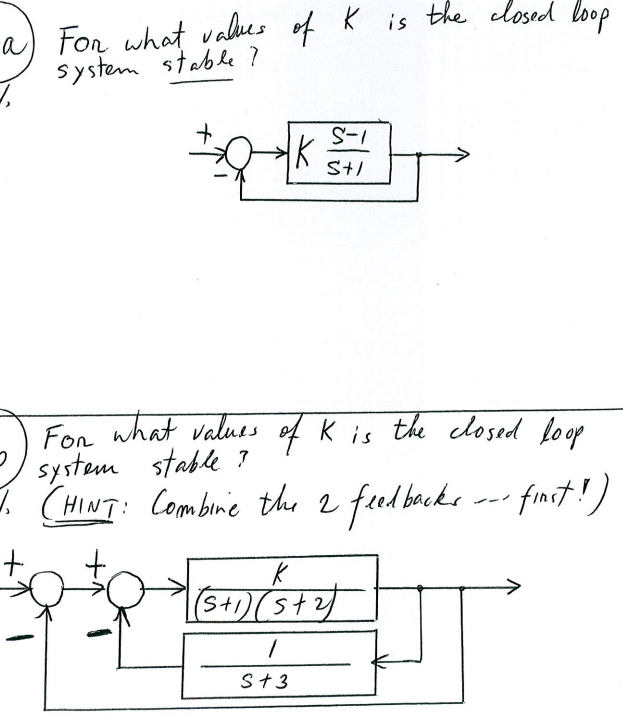 a) For what values of K is the closed loop
system stable?
+
K (s-1)/(s+1)
-
For what values of K is the closed loop
system stable?
(HINT: Combine the 2 feedbacks --- first!)
+ +
K/((s+1)(s+2))
- -
1/(s+3)